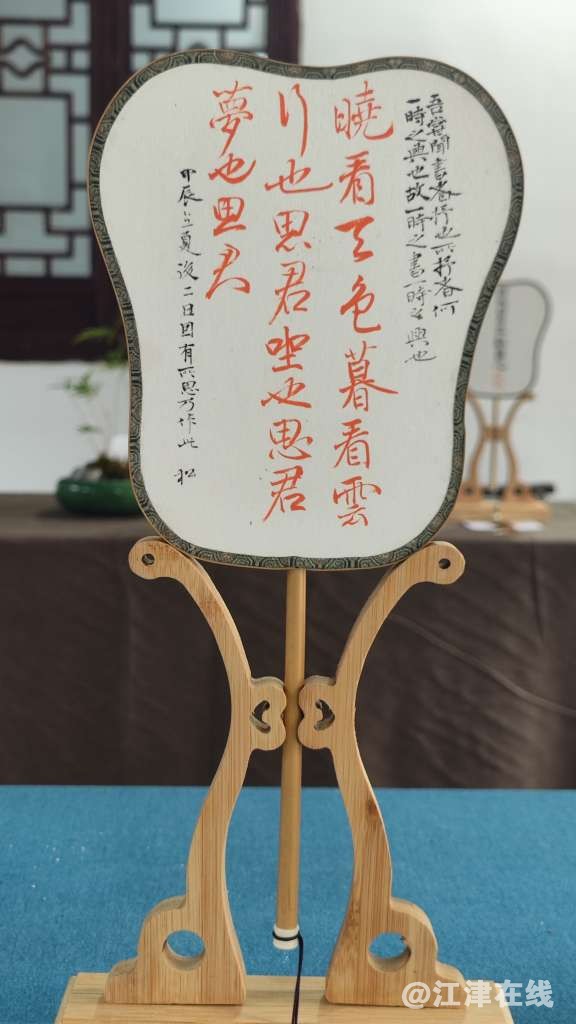 吾嘗聞書者抒也所抒者何
一時之興也故一時之書一時之興也
曉看天色暮看雲
行也思君坐也思君
夢也思君
甲辰立夏後二日因有所思乃作此 松
@江津在线